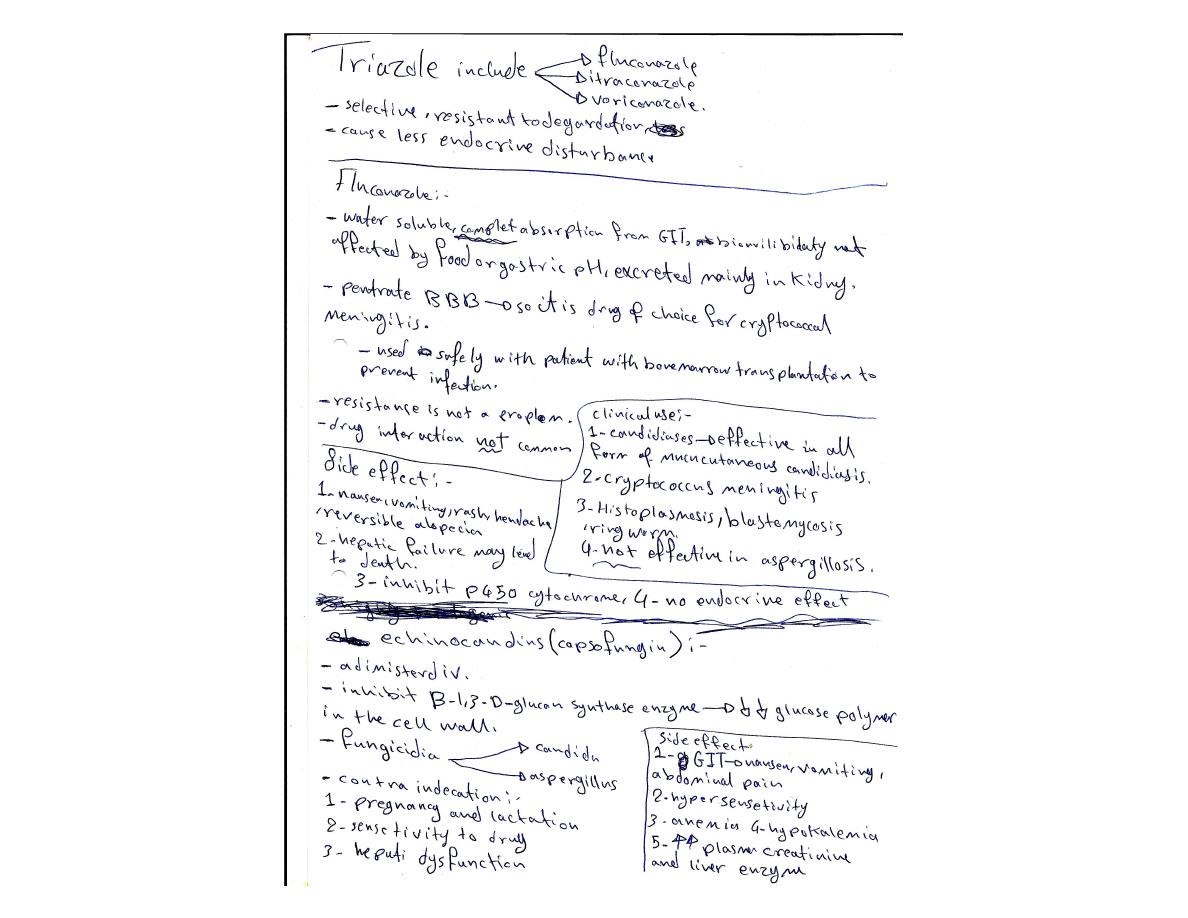 Triazole include → fluconazole
→ itraconazole
→ voriconazole.
- selective, resistant to degardation
- cause less endocrine disturbance
Fluconazole:-
- water soluble, complet absorption from GIT, bioavilibidaty not
affected by food or gastric pH, excreted mainly in Kidny.
- pentrate BBB → so it is drug of choice for cryptococcal
meningitis.
- used safely with patient with bonemarrow transplantation to
prevent infection.
- resistance is not a proplem.
- drug interaction not common
Side effect:-
1- nausea, vomiting, rash, headache
, reversible alopecia
2- hepatic failure may lead
to death.
clinical use:-
1- candidiases → effective in all
form of mucucutaneous candidiasis.
2- cryptococcus meningitis
3- Histoplasmosis, blastomycosis
, ring worm.
4- not effective in aspergillosis.
3- inhibit P450 cytochrome, 4- no endocrine effect
echinocandins (capsofungin) :-
- adimisterd iv.
- inhibit B-1,3-D-glucan synthase enzyme → ↓↓ glucose polymer
in the cell wall.
- fungicidia → candida
→ aspergillus
- contra indecation:-
1- pregnancy and lactation
2- sensetivity to drug
3- hepati dysfunction
Side effect
1- GIT → nausea, vomiting,
abdominal pain
2- hypersensetivity
3- anemia 4- hypokalemia
5- ↑↑ plasma creatinine
and liver enzyme